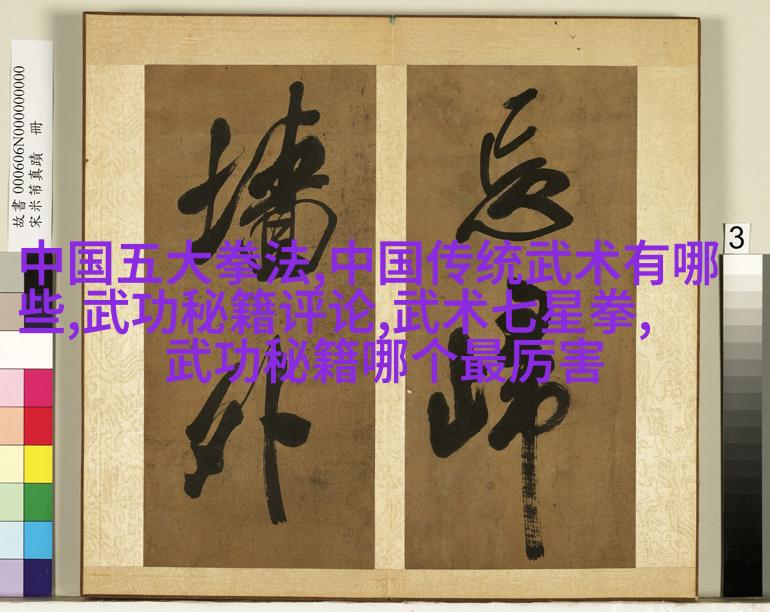 忘歸
墙外
故書 000606N000000000
宋米芾真蹟 冊
3
中国五大拳法,中国传统武术有哪
些,武功秘籍评论,武术七星拳,
武功秘籍哪个最厉害